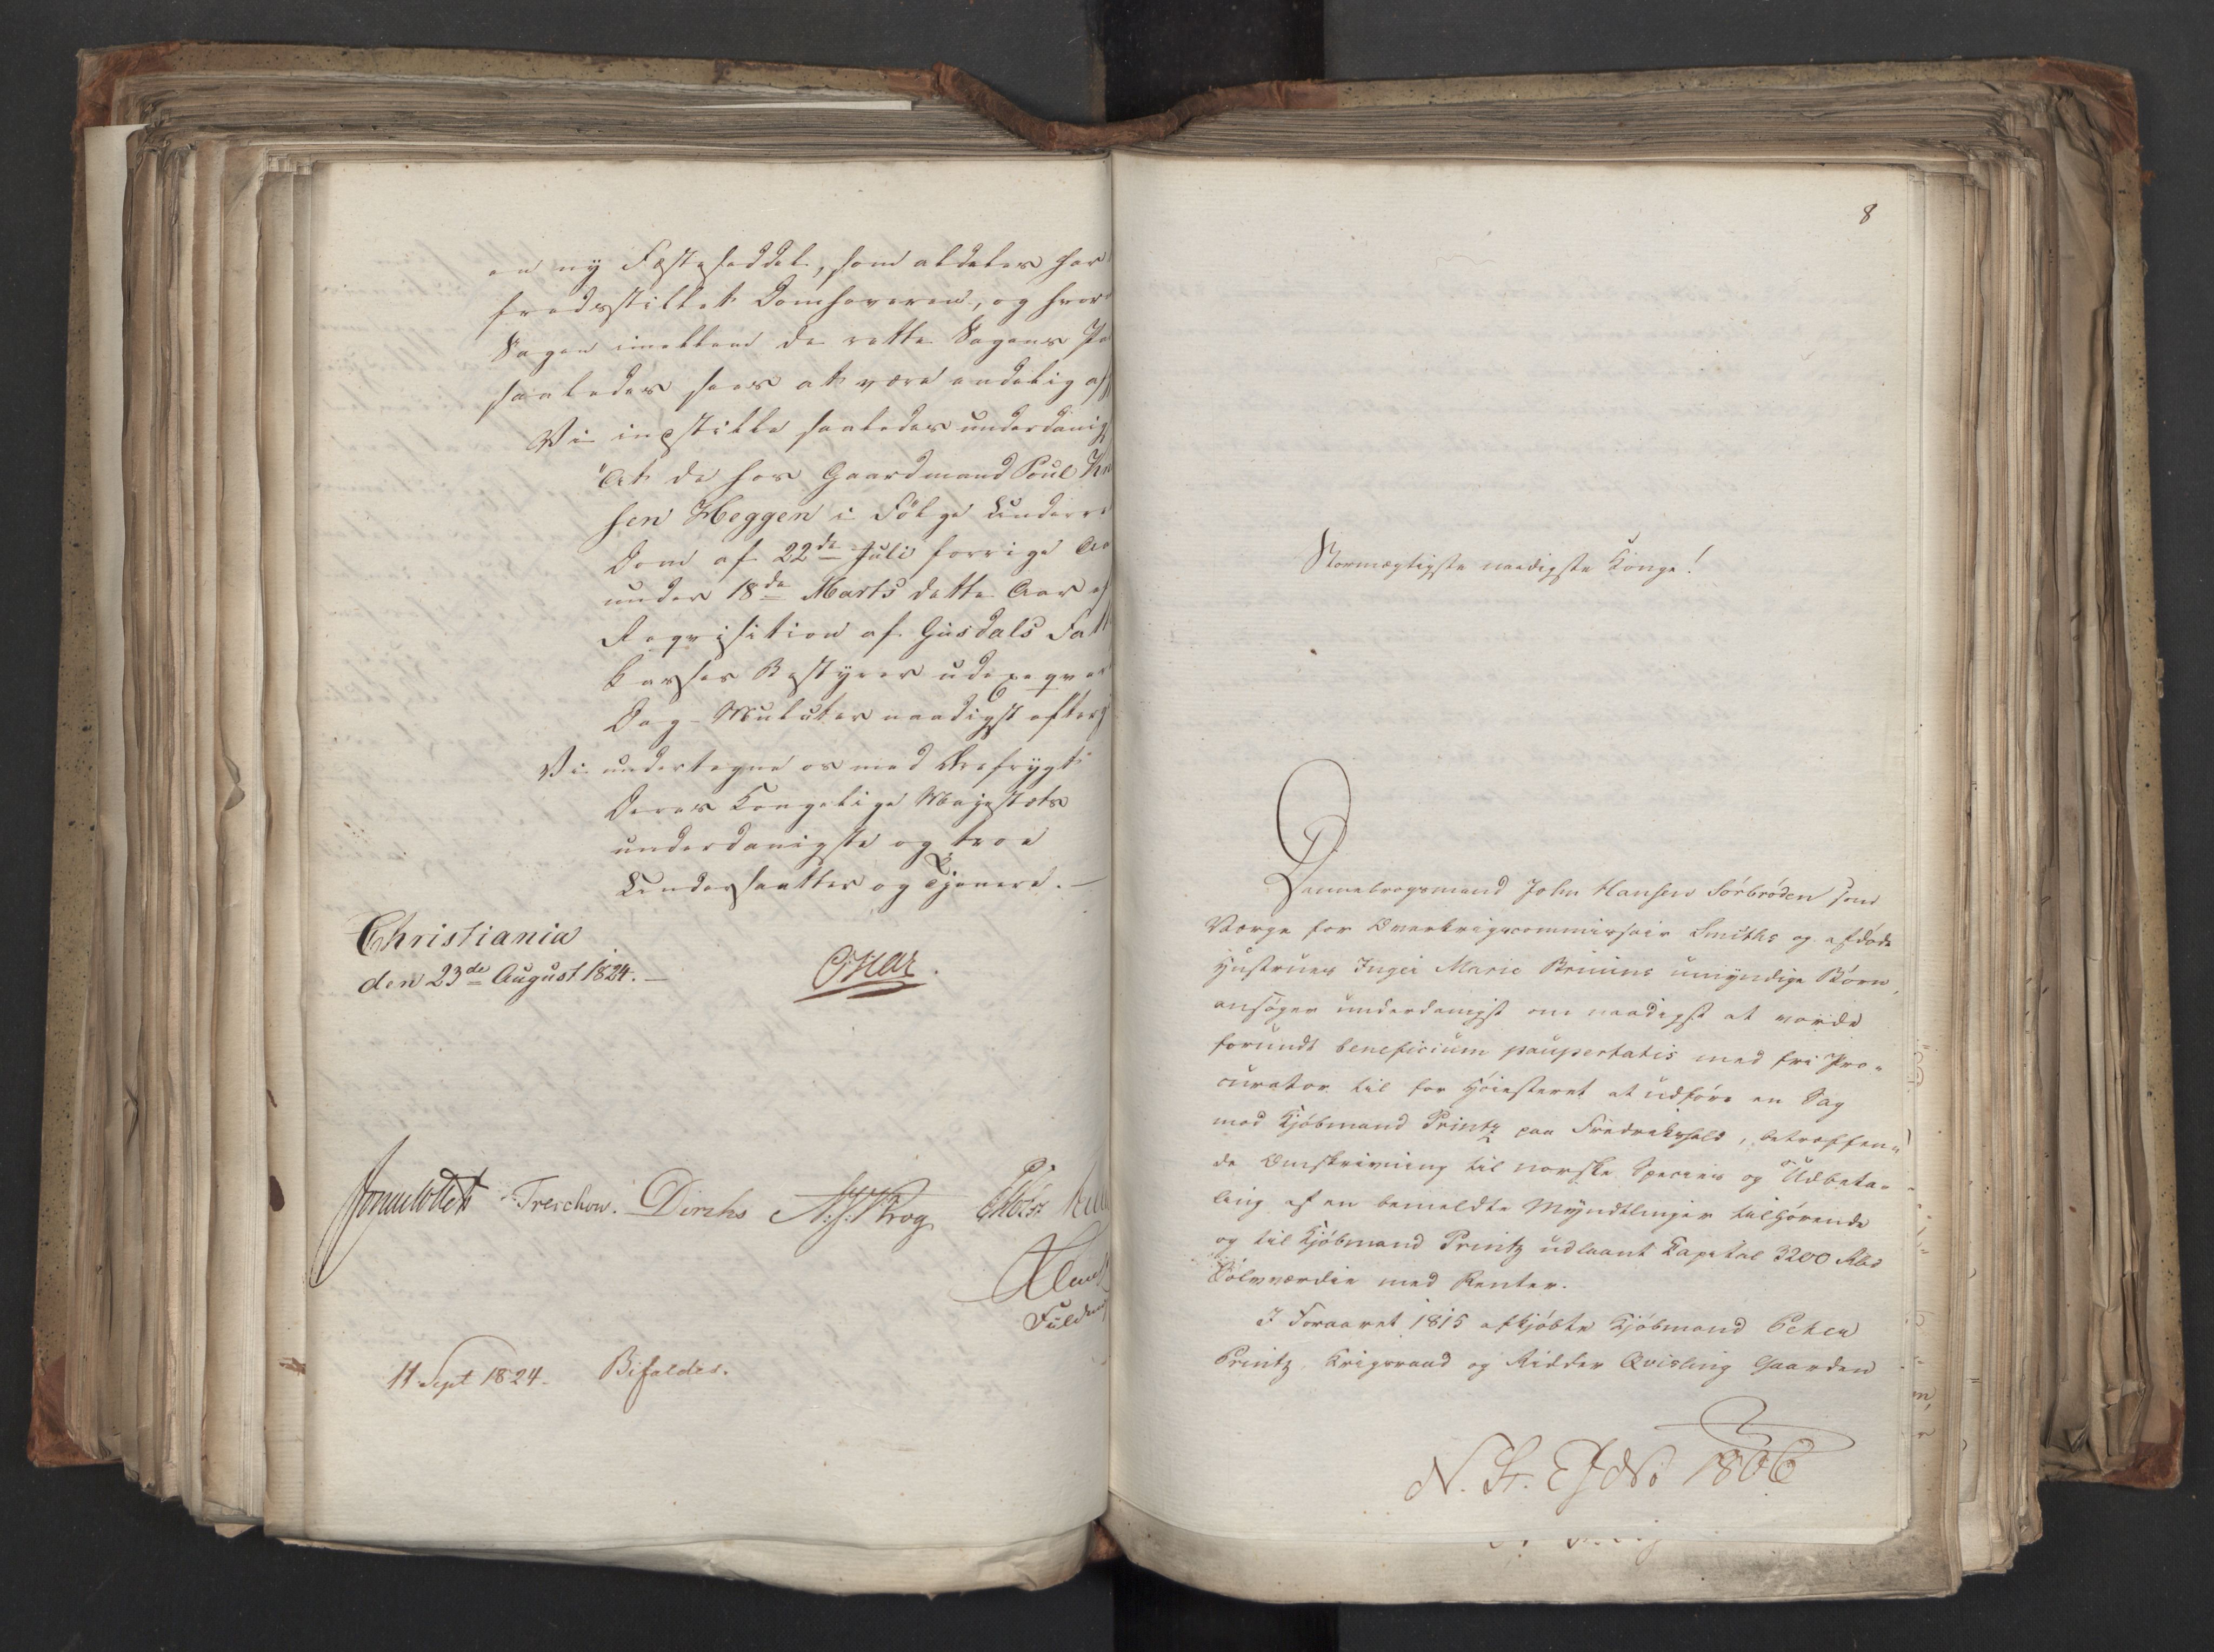 en ny Fæsteseddel, som aldeles har
fredsstillet Domhaveren, og hvor
Sagen imellem de rette Sagens Pa
saaledes sees at være endelig af
Vi indstille saaledes underdanig
"At de hos Gaardmand Poul
sen Heggen i Følge Underre
Dom af 22de Juli forrige Aa
under 18de Marts dette Aar
Reqvisition af Gusdals Fatt
kasses Bestyrer udexeqver
Dag-Mulcter naadigst efterg
Vi undertegne os med Ærefrygt
Deres Kongelige Majestæts
underdanigste og troe
Undersaatter og Tjenere. —
Christiania
den 23de August 1824. —
Oscar.
Treschow. Diriks Krog
11 Sept 1824. Bifaldes.
8
Stormægtigste naadigste Konge!
Dannebrogsmand John Hansen Sørbrøden som
Værge for Overkrigscommissair Smiths og afdøde
Hustrues Inger Marie umyndige Børn,
ansøger underdanigst om naadigst at vorde
forundt beneficium paupertatis med fri Pro-
curator til for Høiesteret at udføre en Sag
mod Kjøbmand Printz paa Fredrikshald, betreffen-
de Omskrivning til norske Species og Udbeta-
ling af en bemeldte Myndtlinger tilhørende
og til Kjøbmand Printz udlaant Capital 3200 Rbd
Sølvværdie med Renter.
I Foraaret 1815 afkjøbte Kjøbmand Peter
Printz Krigsraad og Ridder Qvisling Gaarden